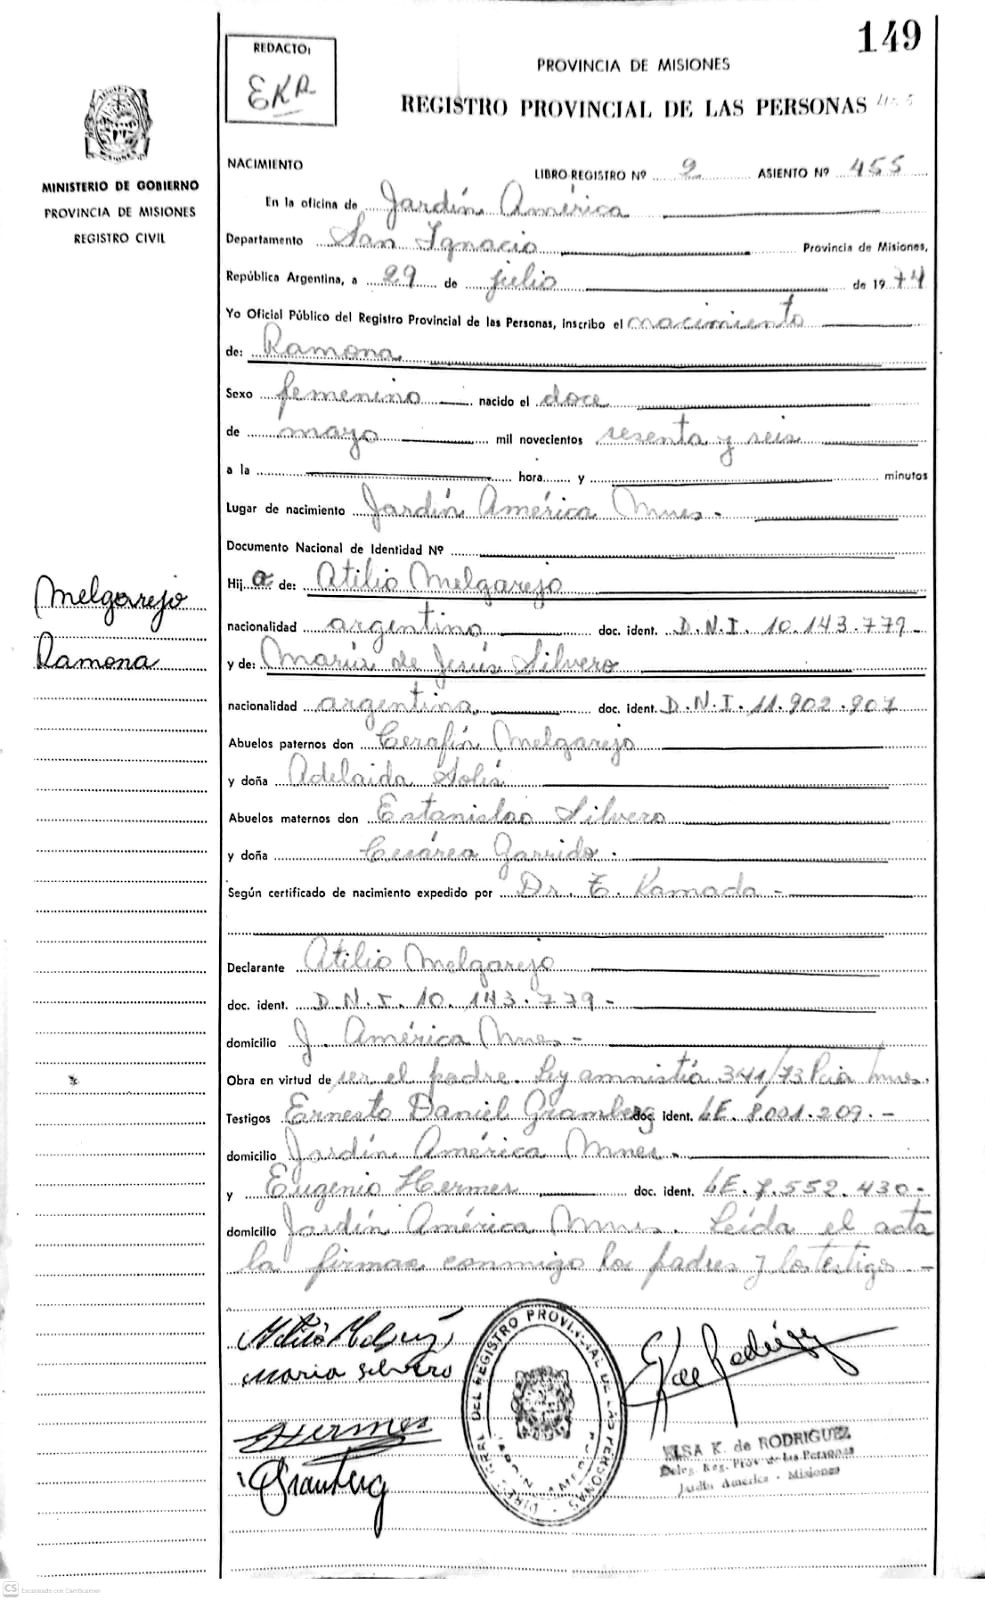 149
REDACTO:
EKR
PROVINCIA DE MISIONES
REGISTRO PROVINCIAL DE LAS PERSONAS 455
MINISTERIO DE GOBIERNO
PROVINCIA DE MISIONES
REGISTRO CIVIL
NACIMIENTO
LIBRO REGISTRO Nº 2 ASIENTO Nº 455
En la oficina de Jardín América
Departamento San Ignacio Provincia de Misiones,
República Argentina, a 29 de julio de 1974
Yo Oficial Público del Registro Provincial de las Personas, Inscribo el nacimiento
de: Ramona
Sexo femenino nacido el doce
de mayo mil novecientos sesenta y seis
a la hora y minutos
Lugar de nacimiento Jardín América Mnes -
Documento Nacional de Identidad Nº
Hija de: Atilio Melgarejo
Melgarejo
Ramona
nacionalidad argentino doc. ident. D.N.I. 10.143.779-
y de: María de Jesús Silvero
nacionalidad argentina doc. ident. D.N.I. 11.902.907
Abuelos paternos don Cerafín Melgarejo
y doña Adelaida Solis
Abuelos maternos don Estanislao Silvero
y doña Cesárea Garrido.
Según certificado de nacimiento expedido por Dr. E. Kamada -
Declarante Atilio Melgarejo
doc. ident. D.N.I. 10.143.779-
domicilio J. América Mnes -
Obra en virtud de ser el padre. Ley amnistía 341/73 Pcia Mnes.
Testigos Ernesto Daniel Gramberg doc. ident. LE. 8.001.209.-
domicilio Jardín América Mnes.
y Eugenio Hermes doc. ident. LE. 7.552.430-
domicilio Jardín América Mnes. Leída el acta
la firman conmigo los padres y los testigos -
maria silvero
EHermes
Gramberg
DIREC. GRAL. DEL REGISTRO PROVINCIAL DE LAS PERSONAS
JARDIN AMERICA
ELSA K. de RODRIGUEZ
Deleg. Reg. Prov de las Personas
Jardín América - Misiones
CS Escaneado con CamScanner